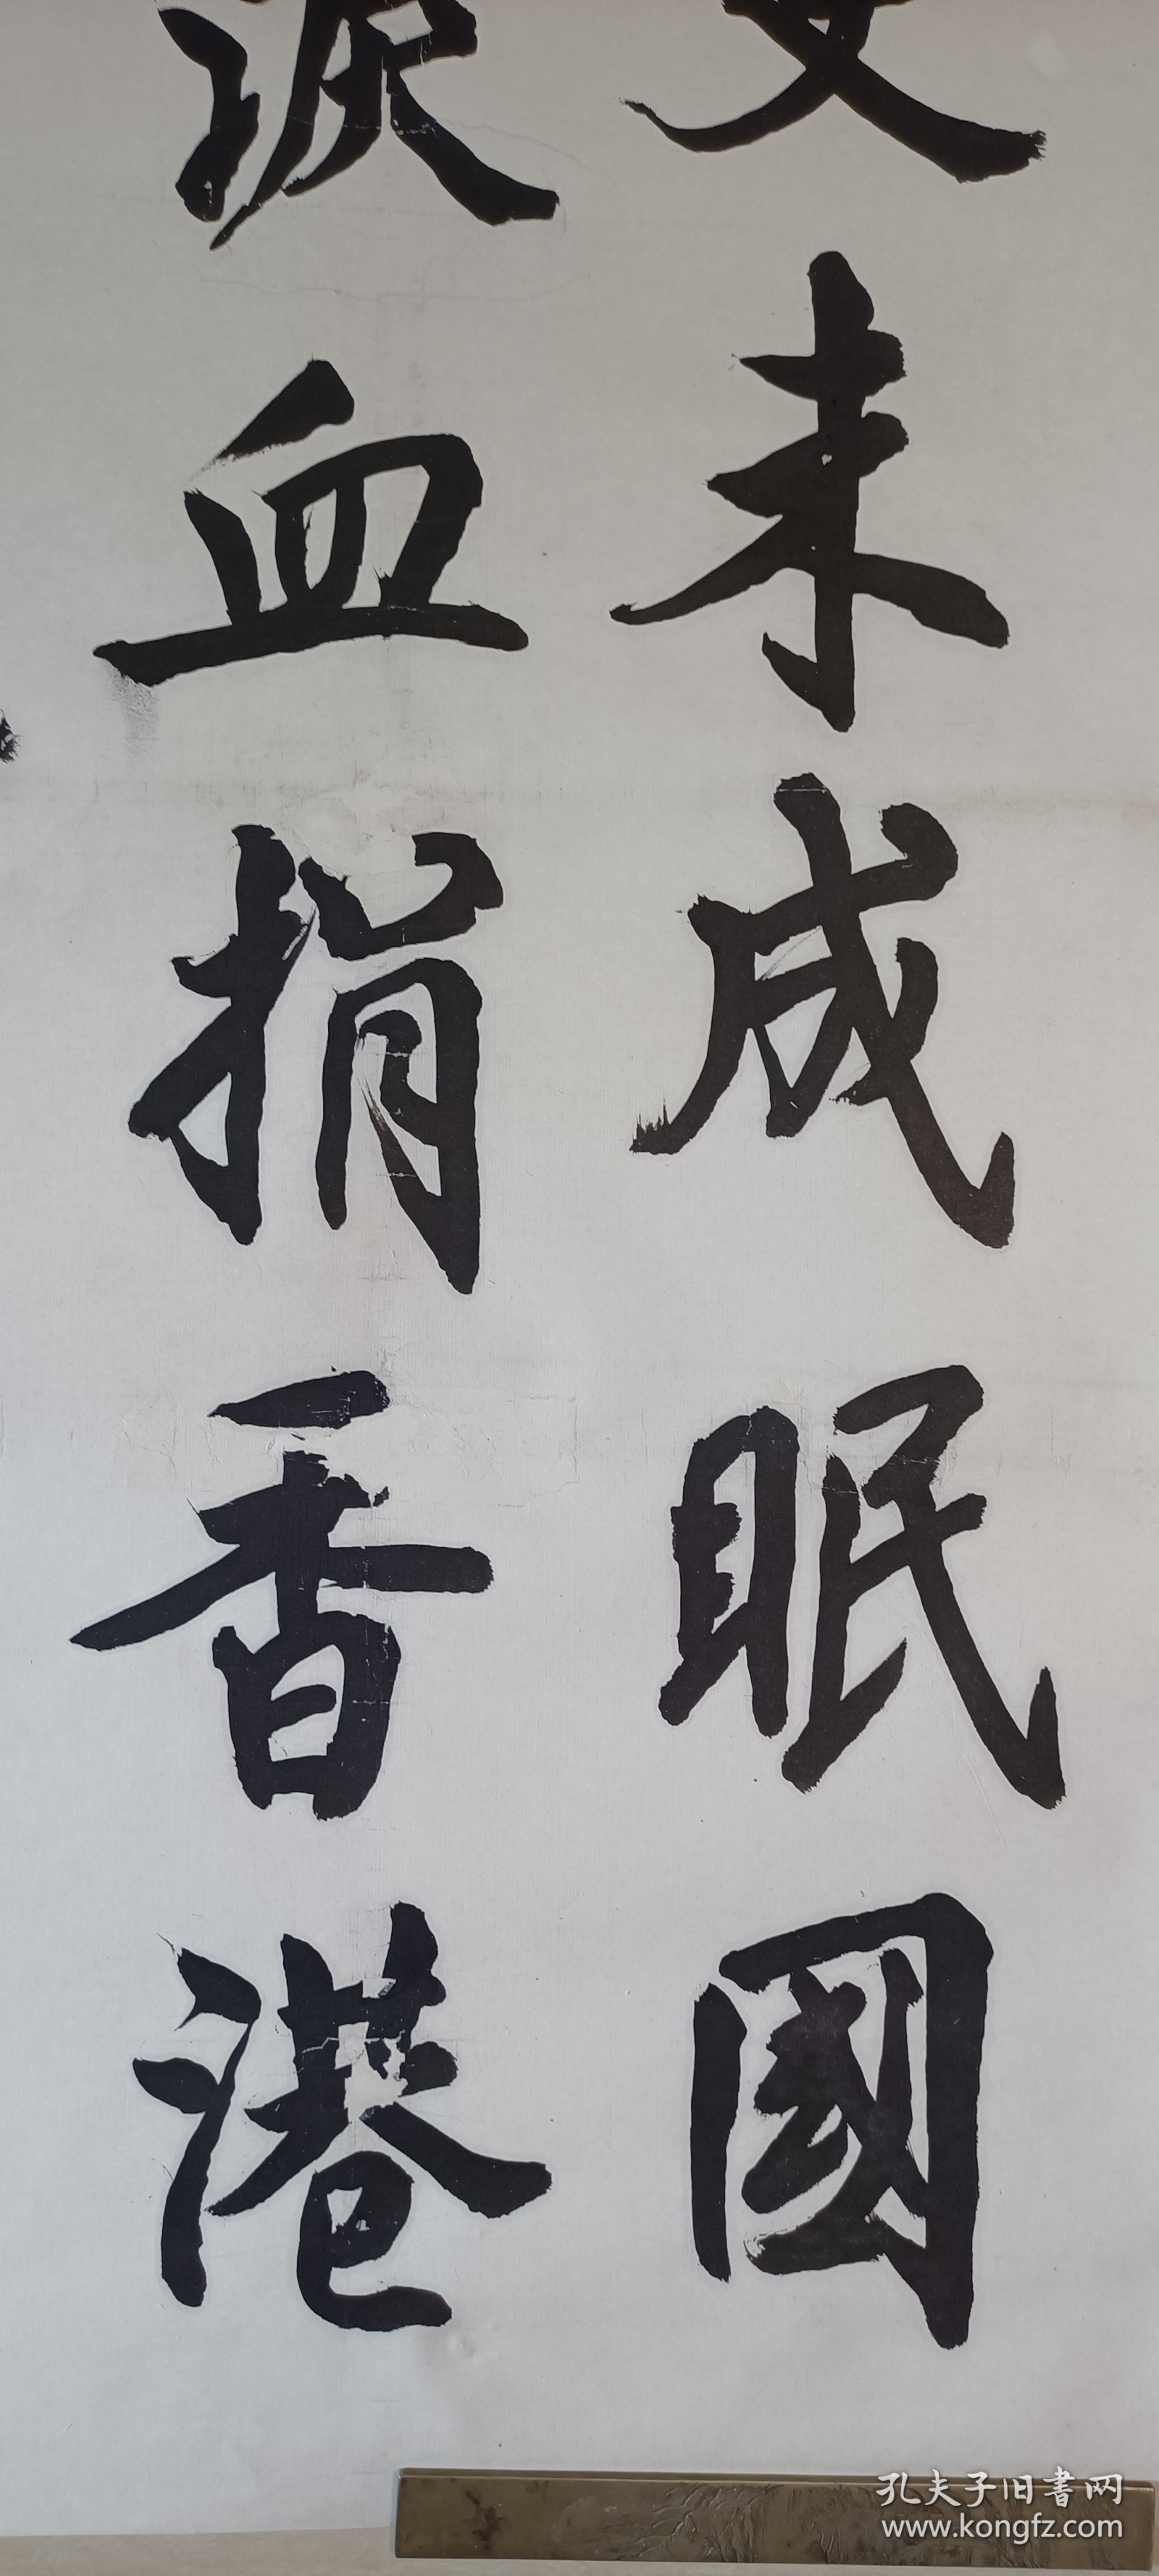 未成眠國
淚血捐香港
孔夫子旧書网
www.kongfz.com